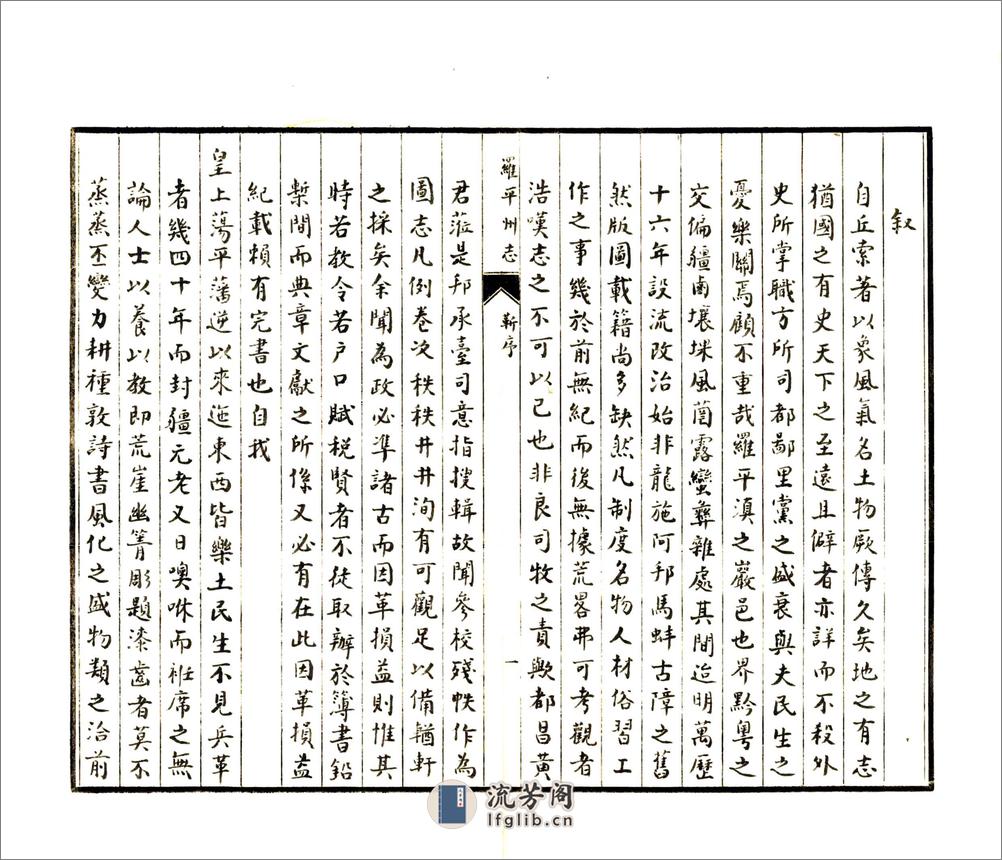 叙
自丘索著以象風氣名土物厥傳久矣地之有志
猶國之有史天下之至遠且僻者亦詳而不殺外
史所掌職方所司都鄙里黨之盛衰與夫民生之
憂樂關焉顧不重哉羅平滇之巖邑也界黔粤之
交偏疆鹵壤堁風䓿露蠻彝雜處其間迨明萬歷
十六年設流改治始非龍施阿邦馬蚌古障之舊
然版圖載籍尚多缺然凡制度名物人材俗習工
作之事幾於前無紀而後無據荒畧弗可考觀者
浩嘆志之不可以已也非良司牧之責歟都昌黄
羅平州志
靳序
一
君蒞是邦承臺司意指搜輯故聞參校殘帙作為
圖志凡例卷次秩秩井井洵有可觀足以備輶軒
之採矣余聞為政必準諸古而因革損益則惟其
時若教令若户口賦税賢者不徒取辦於簿書鉛
槧間而典章文獻之所係又必有在此因革損益
紀載賴有完書也自我
皇上蕩平藩逆以來迤東西皆樂土民生不見兵革
者幾四十年而封疆元老又日噢咻而袵席之無
論人士以養以教即荒崖幽箐彫題漆齒者莫不
蒸蒸丕變力耕種敦詩書風化之盛物類之洽前
流芳阁
lfglib.cn